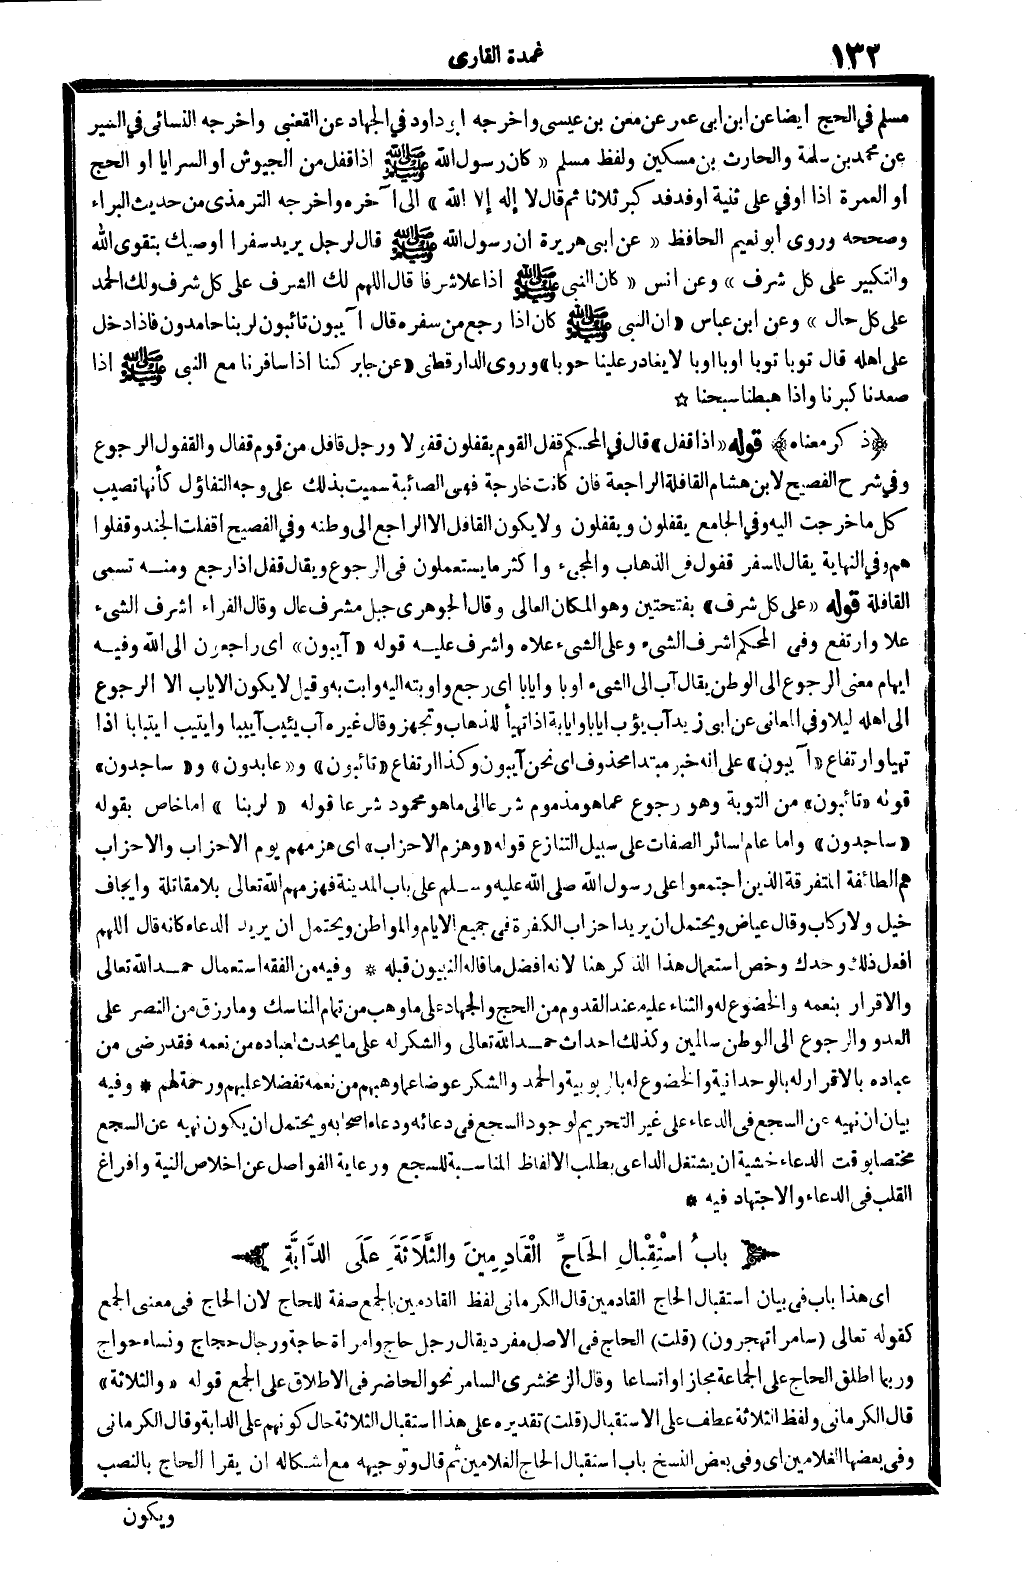 ١٣٢
عمدة القارى
مسلم في الحج أيضا عن ابن ابى عمر عن معن بن عيسى واخرجه ابو داود في الجهاد عن القعنبي واخرجه النسائى في السير
عن محمد بن سلمة والحارث بن مسكين ولفظ مسلم « كان رسول الله ﷺ اذا قفل من الجيوش أو السرايا او الحج
او العمرة اذا اوفي على ثنية او فدفد كبر ثلاثا ثم قال لا إله إلا الله » الى آخره واخرجه الترمذى من حديث البراء
وصححه وروى أبو نعيم الحافظ « عن ابى هريرة ان رسول الله ﷺ قال لرجل يريد سفرا اوصيك بتقوى الله
والتكبير على كل شرف » وعن انس « كان النبى ﷺ اذا علا شرفا قال اللهم لك الشرف على كل شرف ولك الحمد
على كل حال » وعن ابن عباس « ان النبي ﷺ كان اذا رجع من سفره قال آيبون تائبون لربنا حامدون فاذا دخل
على اهله قال توبا توبا اوبا اوبا لا يغادر علينا حوبا» وروى الدارقطنى «عن جابر كنا اذا سافرنا مع النبي ﷺ اذا
صعدنا كبرنا واذا هبطنا سبحنا ☆
﴿ذكر معناه﴾ قوله «اذا قفل» قال في المحكم قفل القوم يقفلون قفولا ورجل قافل من قوم قفال والقفول الرجوع
وفي شرح الفصيح لابن هشام القافلة الراجعة فان كانت خارجة فهى الصائبة سميت بذلك على وجه التفاؤل كأنها تصيب
كل ما خرجت اليه وفي الجامع يقفلون ويقفلون ولا يكون القافل الا الراجع الى وطنه وفي الفصيح اقفلت الجند وقفلوا
هم وفي النهاية يقال للسفر قفول في الذهاب والمجىء واكثر ما يستعملون فى الرجوع ويقال قفل اذا رجع ومنه تسمى
القافلة قوله «على كل شرف» بفتحتين وهو المكان العالى وقال الجوهرى جبل مشرف عال وقال الفراء اشرف الشىء
علا وارتفع وفى المحكم اشرف الشىء وعلى الشىء علاه واشرف عليه قوله «آيبون» اى راجعون الى الله وفيه
ايهام معنى الرجوع الى الوطن يقال آب الى الشىء اوبا وايابا اى رجع واوبته اليه وابت به وقيل لا يكون الاياب الا الرجوع
الى اهله ليلا وفي المعانى عن ابى زيد آب يؤب ايابا وايابة اذا تهيأ للذهاب وتجهز وقال غيره آب يئيب آييبا وايتيب ايتيابا اذا
تهيا وارتفاع «آيبون» على انه خبر مبتدا محذوف اى نحن آيبون وكذا ارتفاع «تائبون» و«عابدون» و« ساجدون»
قوله «تائبون» من التوبة وهو رجوع عما هو مذموم شرعا الى ما هو محمود شرعا قوله « لربنا » اما خاص بقوله
«ساجدون» واما عام لسائر الصفات على سبيل التنازع قوله «وهزم الاحزاب» اى هزمهم يوم الاحزاب والاحزاب
هم الطائفة المتفرقة الذين اجتمعوا على رسول الله صلى الله عليه وسلم على باب المدينة فهزمهم الله تعالى بلا مقاتلة وايجاف
خيل ولا ركاب وقال عياض ويحتمل ان يريد احزاب الكفرة فى جميع الايام والمواطن ويحتمل ان يريد الدعاء كانه قال اللهم
افعل ذلك وحدك وخص استعمال هذا الذكر هنا لانه افضل ما قاله النبيون قبله * وفيه من الفقه استعمال حمد الله تعالى
والاقرار بنعمه والخضوع له والثناء عليه عند القدوم من الحج والجهاد على ما وهب من تمام المناسك وما رزق من النصر على
العدو والرجوع الى الوطن سالمين وكذلك احداث حمد الله تعالى والشكر له على ما يحدث لعباده من نعمه فقد رضى من
عباده بالاقرار له بالوحدانية والخضوع له بالربوبية والحمد والشكر عوضا عما وهبهم من نعمه تفضلا عليهم ورحمة لهم * وفيه
بيان ان نهيه عن السجع فى الدعاء على غير التحريم لوجود السجع فى دعائه ودعاء اصحابه ويحتمل ان يكون نهيه عن السجع
مختصا بوقت الدعاء خشية ان يشتغل الداعى بطلب الالفاظ المناسبة للسجع ورعاية الفواصل عن اخلاص النية وافراغ
القلب فى الدعاء والاجتهاد فيه *
باب استقبال الحاج القادمين والثلاثة على الدابة
اى هذا باب فى بيان استقبال الحاج القادمين قال الكرمانى لفظ القادمين بالجمع صفة للحاج لان الحاج فى معنى الجمع
كقوله تعالى (سامرا تهجرون) (قلت) الحاج فى الاصل مفرد يقال رجل حاج وامراة حاجة ورجال حجاج ونساء حواج
وربما اطلق الحاج على الجماعة مجازا واتساعا وقال الزمخشرى السامر نحو الحاضر فى الاطلاق على الجمع قوله «والثلاثة»
قال الكرمانى ولفظ الثلاثة عطف على الاستقبال (قلت) تقديره على هذا استقبال الثلاثة حال كونهم على الدابة وقال الكرمانى
وفى بعضها الغلامين اى وفى بعض النسخ باب استقبال الحاج الغلامين ثم قال وتوجيهه مع اشكاله ان يقرا الحاج بالنصب
ويكون